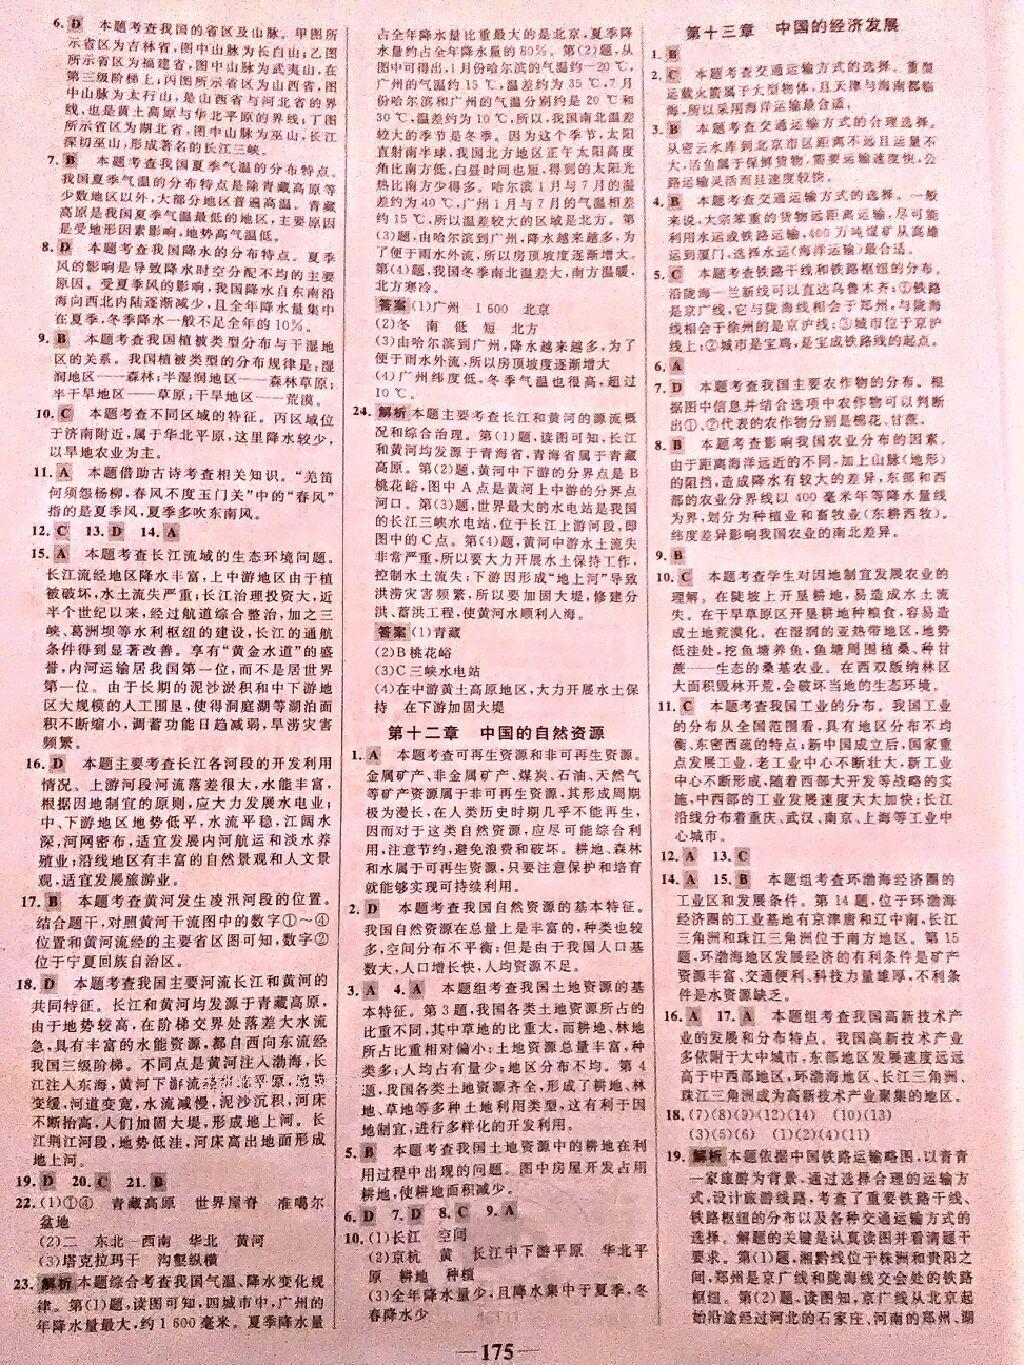 6. D 本题考查我国的省区及山脉。甲图所
示省区为吉林省，图中山脉为长白山；乙图
所示省区为福建省，图中山脉为武夷山，在
第三级阶梯上；丙图所示省区为山西省，图
中山脉为太行山，是山西省与河北省的界
线，也是黄土高原与华北平原的界线；丁图
所示省区为湖北省，图中山脉为巫山，长江
深切巫山，形成著名的长江三峡。
7. B 本题考查我国夏季气温的分布特点。
我国夏季气温的分布特点是除青藏高原等
少数地区以外，大部分地区普遍高温。青藏
高原是我国夏季气温最低的地区，主要原因
是受地形因素影响，地势高气温低。
8. D 本题考查我国降水的分布特点。夏季
风的影响是导致降水时空分配不均的主要
原因。受夏季风的影响，我国降水自东南沿
海向西北内陆逐渐减少，且全年降水量集中
在夏季，冬季降水一般不足全年的10%。
9. B 本题考查我国植被类型分布与干湿地
区的关系。我国植被类型的分布规律是：湿
润地区——森林；半湿润地区——森林草原；
半干旱地区——草原；干旱地区——荒漠。
10. C 本题考查不同区域的特征。丙区域位
于济南附近，属于华北平原，这里降水较少，
以旱地农业为主。
11. A 本题借助古诗考查相关知识。“羌笛
何须怨杨柳，春风不度玉门关”中的“春风”
指的是夏季风，夏季多吹东南风。
12. C 13. D 14. A
15. A 本题考查长江流域的生态环境问题。
长江流经地区降水丰富，上中游地区由于植
被破坏，水土流失严重；长江治理投资大，近
半个世纪以来，经过航道综合整治，加之三
峡、葛洲坝等水利枢纽的建设，长江的通航
条件得到显著改善。享有“黄金水道”的盛
誉，内河运输居我国第一位，而不是居世界
第一位。由于长期的泥沙淤积和中下游地
区大规模的人工围垦，使得洞庭湖等湖泊面
积不断缩小，调蓄功能日趋减弱，旱涝灾害
频繁。
16. D 本题主要考查长江各河段的开发利用
情况。上游河段河流落差很大，水能丰富，
根据因地制宜的原则，应大力发展水电业；
中、下游地区地势低平，水流平稳，江阔水
深，河网密布，适宜发展内河航运和淡水养
殖业；沿线地区有丰富的自然景观和人文景
观，适宜发展旅游业。
17. B 本题考查黄河发生凌汛河段的位置。
结合题干，对照黄河干流图中的数字①～④
位置和黄河流经的主要省区图可知，数字②
位于宁夏回族自治区。
18. D 本题考查我国主要河流长江和黄河的
共同特征。长江和黄河均发源于青藏高原，
由于地势较高，在阶梯交界处落差大水流
急，具有丰富的水能资源，都自西向东流经
我国三级阶梯。不同点是黄河注入渤海，长
江注入东海，黄河下游流经华北平原，地势
变缓，河道变宽，水流减慢，泥沙沉积，河床
不断抬高，人们加固大堤，形成地上河。长
江荆江河段，地势低洼，河床高出地面形成
地上河。
19. D 20. C 21. B
22. (1)①④ 青藏高原 世界屋脊 准噶尔
盆地
(2)二 东北—西南 华北 黄河
(3)塔克拉玛干 沟壑纵横
23. 解析 本题综合考查我国气温、降水变化规
律。第(1)题，读图可知，四城市中，广州的
年降水量最大，约1 600毫米。夏季降水量
占全年降水量比重最大的是北京，夏季降水
量约占全年降水量的80%。第(2)题，从
图中可得出，1月份哈尔滨的气温约－20 ℃，
广州的气温约15 ℃，温差约为35 ℃，7月
份哈尔滨和广州的气温分别约是20 ℃和
30 ℃，温差约为10 ℃，所以，我国南北温差
较大的季节是冬季。因为这个季节，太阳
直射南半球，我国北方地区正午太阳高度
角比南方低，白昼时间也短，得到的太阳光
热比南方少得多。哈尔滨1月与7月的温
差约为40 ℃，广州1月与7月的气温相差
约15 ℃，所以温差较大的区域是北方。第
(3)题，由哈尔滨到广州，降水越来越多，为
了便于雨水外流，所以房顶坡度逐渐增大。
第(4)题，我国冬季南北温差大，南方温暖，
北方寒冷。
答案 (1)广州 1 600 北京
(2)冬 南 低 短 北方
(3)由哈尔滨到广州，降水越来越多，为了
便于雨水外流，所以房顶坡度逐渐增大
(4)广州纬度低，冬季气温也很高，超过
10 ℃。
24. 解析 本题主要考查长江和黄河的源流概
况和综合治理。第(1)题，读图可知，长江
和黄河均发源于青海省，青海省属于青藏
高原。第(2)题，黄河中下游的分界点是B
桃花峪，图中A点是黄河上中游的分界点
河口。第(3)题，世界最大的水电站是我国
的长江三峡水电站，位于长江上游河段，即
图中的C点。第(4)题，黄河中游水土流失
非常严重，所以要大力开展水土保持工作，
控制水土流失；下游因形成“地上河”导致
洪涝灾害频繁，所以要加固大堤，修建分
洪、蓄洪工程，使黄河水顺利入海。
答案 (1)青藏
(2)B桃花峪
(3)C三峡水电站
(4)在中游黄土高原地区，大力开展水土保
持 在下游加固大堤
第十二章 中国的自然资源
1. A 本题考查可再生资源和非可再生资源。
金属矿产、非金属矿产、煤炭、石油、天然气
等矿产资源属于非可再生资源，其形成周期
极为漫长，在人类历史时期几乎不能再生，
因而对于这类自然资源，应尽可能综合利
用，注意节约，避免浪费和破坏。耕地、森林
和水属于可再生资源，只要注意保护和培育
就能够实现可持续利用。
2. D 本题考查我国自然资源的基本特征。
我国自然资源在总量上是丰富的，种类也较
多，空间分布不平衡；但是由于我国人口基
数大，人口增长快，人均资源不足。
3. A 4. A 本题组考查我国土地资源的基
本特征。第3题，我国各类土地资源所占的
比重不同，其中草地的比重大，而耕地、林地
所占比重相对偏小；土地资源总量丰富，种
类多；人均占有量少；地区分布不均。第4
题，我国各类土地资源齐全，形成了耕地、林
地、草地等多种土地利用类型，这有利于因
地制宜，进行多样化的开发利用。
5. B 本题考查我国土地资源中的耕地在利
用过程中出现的问题。图中房屋开发占用
耕地，使耕地面积减少。
6. D 7. D 8. C 9. A
10. (1)长江 空间
(2)京杭 黄 长江中下游平原 华北平
原 耕地 种植
(3)全年降水量少，且降水集中于夏季，冬
春降水少
第十三章 中国的经济发展
1. B
2. C 本题考查交通运输方式的选择。重型
运载火箭属于大型物体，且天津与海南都临
海，所以采用海洋运输最合适。
3. B 本题考查交通运输方式的合理选择。
从密云水库到北京市区距离不远且运量不
大，活鱼属于保鲜货物，需要运输速度快，公
路运输灵活而且速度较快。
4. B 本题考查交通运输方式的选择。一般
来说，大宗笨重的货物远距离运输，尽可能
利用水运或铁路运输，400万吨煤矿从高雄
运到厦门，选择水运（海洋运输）最合适。
5. C 本题考查铁路干线和铁路枢纽的分布。
沿陇海—兰新线可以直达乌鲁木齐；①铁路
是京广线，它与陇海线相会于郑州，与陇海
线相会于徐州的是京沪线；③城市位于京沪
线上；②城市是宝鸡，是宝成铁路线的起点。
6. A
7. D 本题考查我国主要农作物的分布。根
据图中信息并结合选项中农作物可以判断
出①、②代表的农作物分别是棉花、甘蔗。
8. B 本题考查影响我国农业分布的因素。
由于距离海洋远近的不同，加上山脉（地形）
的阻挡，造成降水有较大的差异，东部和西
部的农业分界线以400毫米年等降水量线
为界，划分为种植业和畜牧业（东耕西牧）。
纬度差异影响我国农业的南北差异。
9. B
10. C 本题考查学生对因地制宜发展农业的
理解。在陡坡上开垦耕地，易造成水土流
失。在干旱草原区开垦耕地种粮食，容易造
成土地荒漠化。在湿润的亚热带地区，地势
低洼处，挖鱼塘养鱼，鱼塘周围植桑、种甘
蔗——生态的桑基农业。在西双版纳林区
大面积毁林开荒，会破坏当地的生态环境。
11. C 本题考查我国工业的分布。我国工业
的分布从全国范围看，具有地区分布不均
衡、东密西疏的特点；新中国成立后，国家重
点发展工业，老工业中心不断壮大，新工业
中心不断形成，随着西部大开发等战略的实
施，中西部的工业发展速度大大加快；长江
沿线分布着重庆、武汉、南京、上海等工业中
心城市。
12. A 13. C
14. A 15. B 本题组考查环渤海经济圈的
工业区和发展条件。第14题，位于环渤海
经济圈的工业基地有京津唐和辽中南，长江
三角洲和珠江三角洲位于南方地区。第15
题，环渤海地区发展经济的有利条件是矿产
资源丰富，交通便利，科技力量雄厚，不利条
件是水资源缺乏。
16. A 17. A 本题组考查我国高新技术产
业的发展和分布特点。我国高新技术产业
多依附于大中城市，东部地区发展速度远远
高于中西部地区，环渤海地区、长江三角洲、
珠江三角洲成为高新技术产业聚集的地区。
18. (7)(8)(9)(12)(14) (10)(13)
(3)(5)(6) (1)(2)(4)(11)
19. 解析 本题依据中国铁路运输略图，以青青
一家旅游为背景，通过选择合理的运输方
式，设计旅游线路，考查了重要铁路干线、
铁路枢纽的分布以及各种交通运输方式的
选择。解题的关键是认真读图并看清题干
要求。第(1)题，湘黔线位于株洲和贵阳之
间，郑州是京广线和陇海线交会处的铁路
枢纽。第(2)题，读图知，京广线从北京起
始沿途经过河北的石家庄、河南的郑州、湖
— 175 —